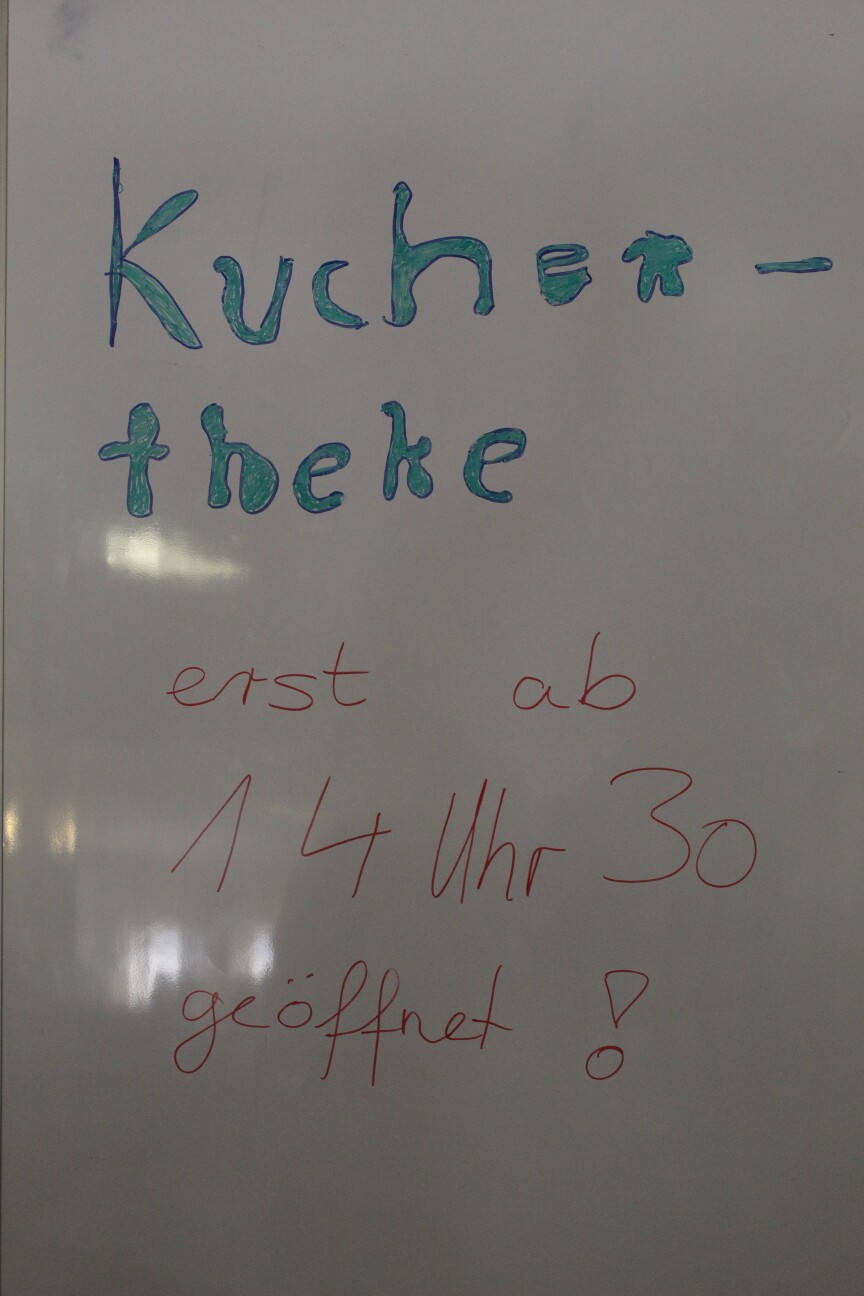 Kuchen-
theke
erst ab
14 Uhr 30
geöffnet!